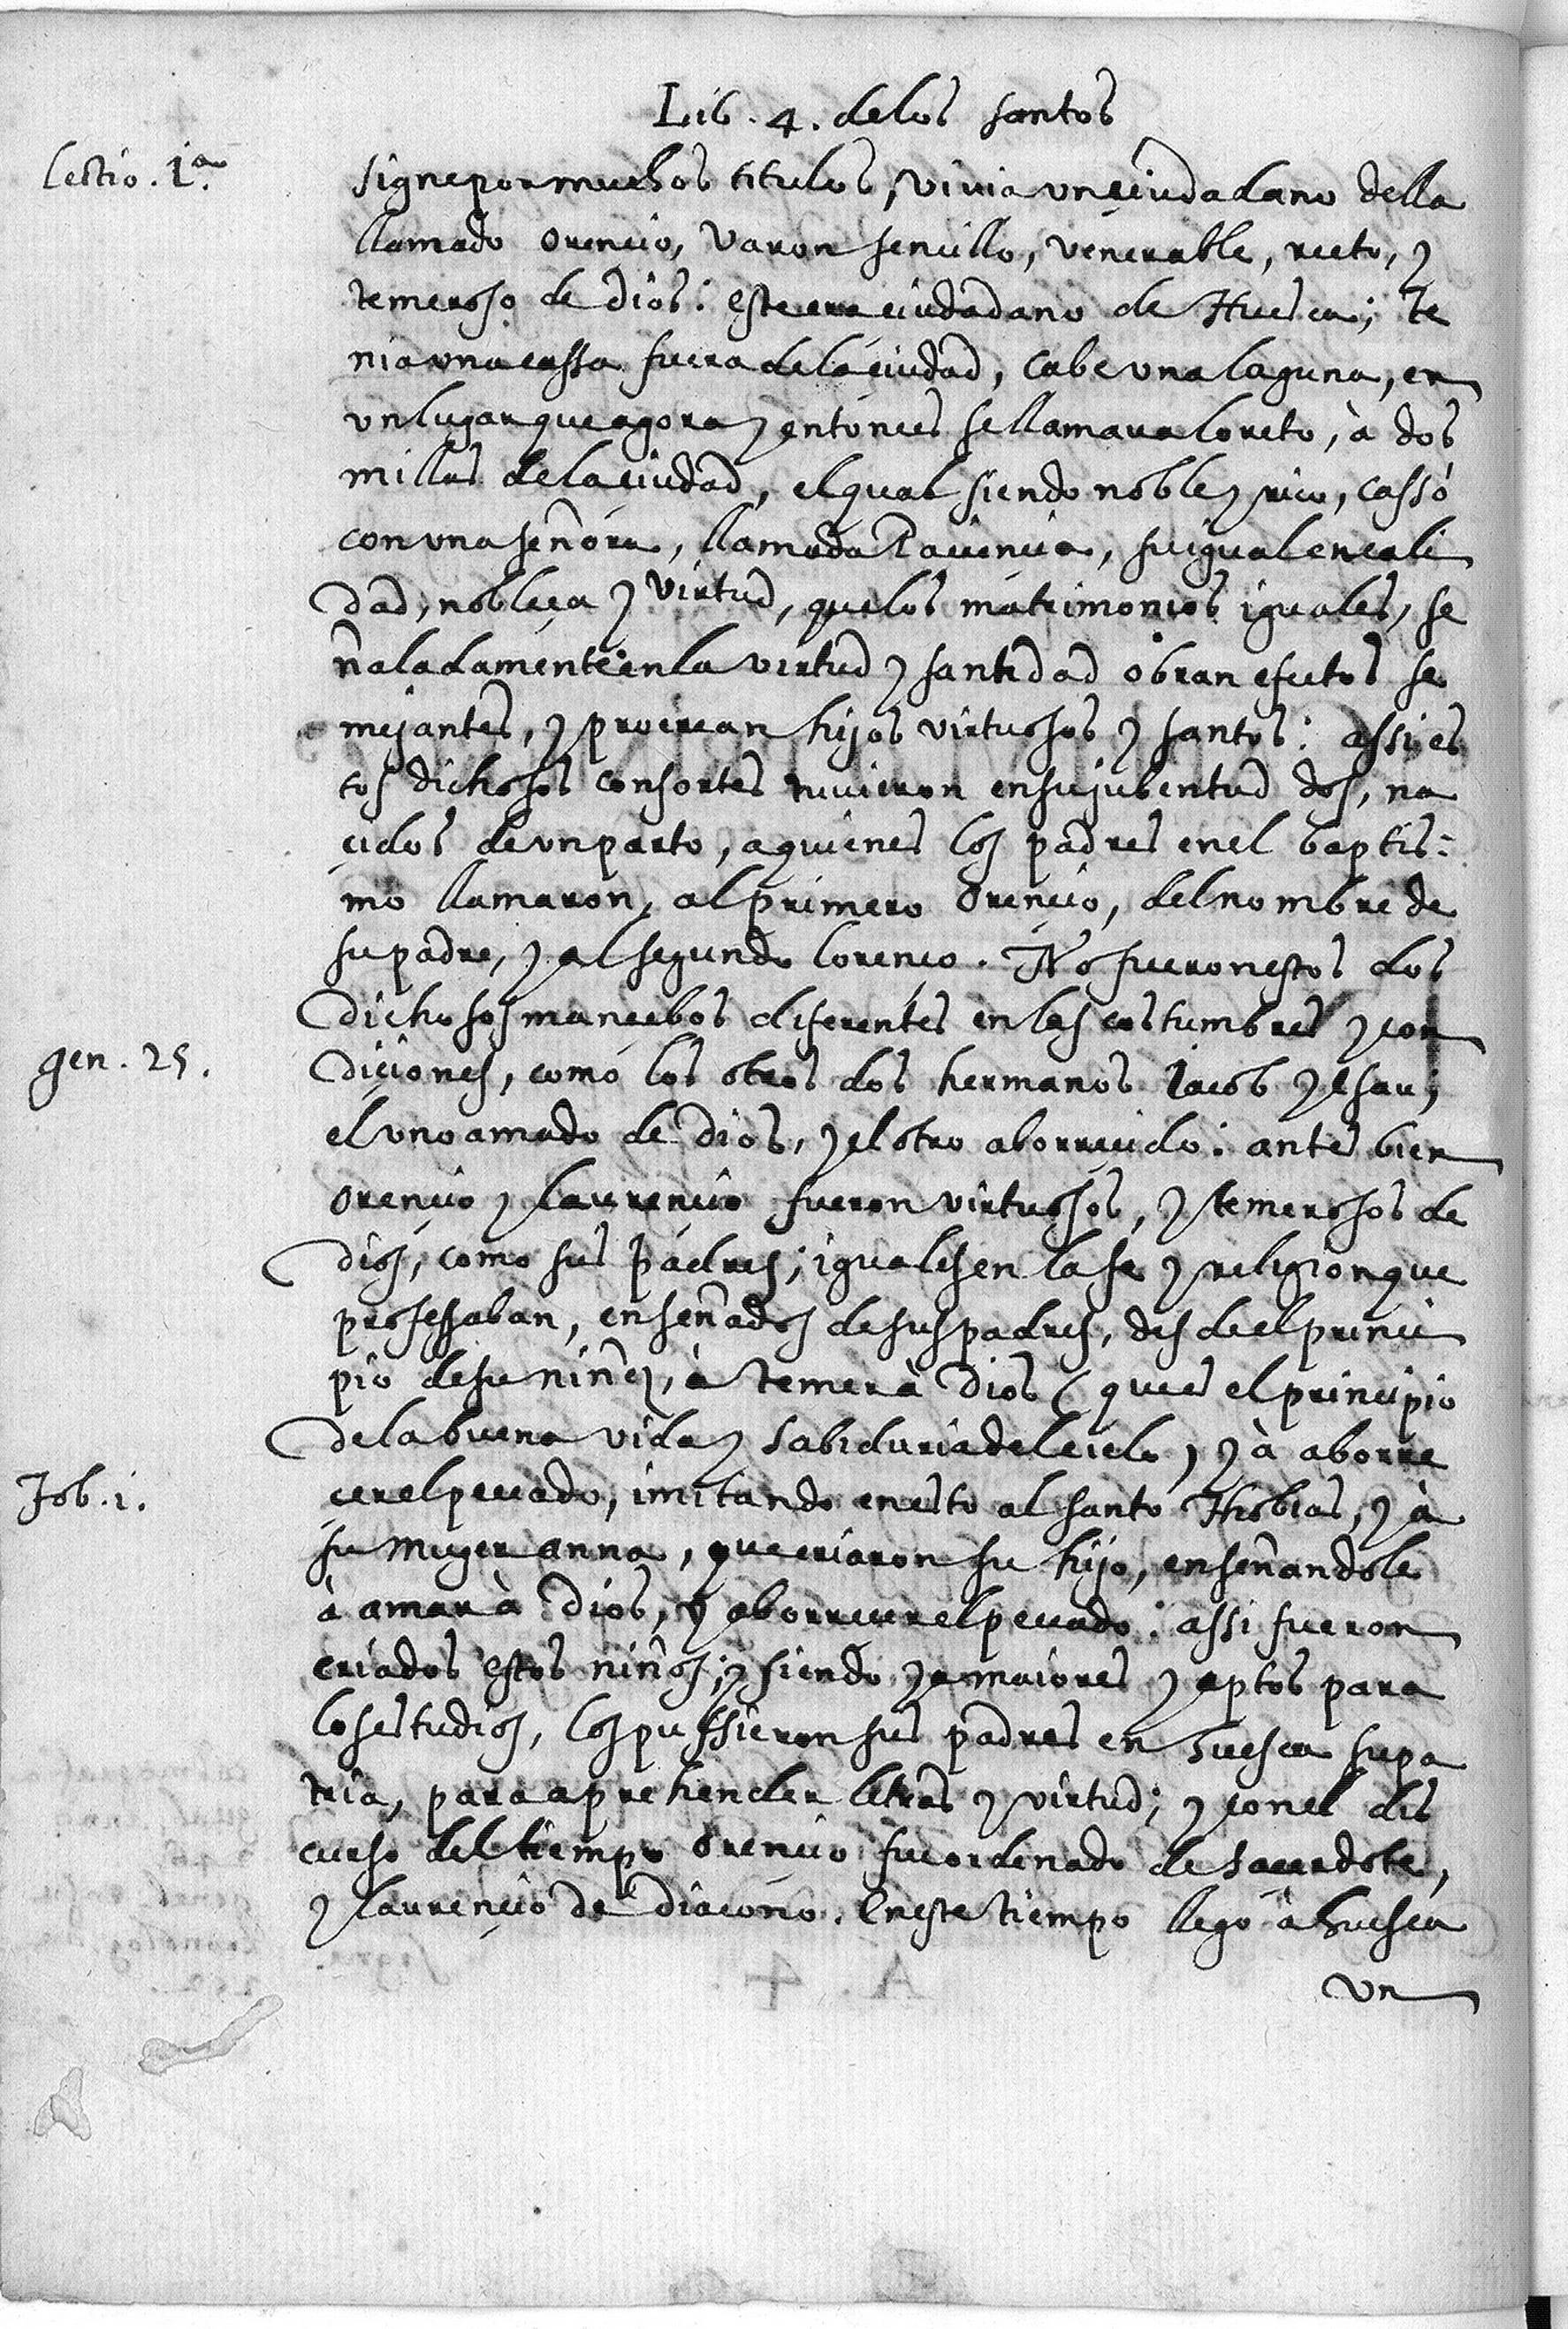 Lib. 4. de los santos
Lectio. 1ª.
signe por muchos titulos, viuia un çiudadano della
llamado Orençio, varon sençillo, venerable, recto, y
temeroso de Dios: este era çiudadano de Huesca; te
nia vna cassa fuera de la çiudad, cabe vna laguna, en
vn lugar que agora y entonçes se llamaua loreto, à dos
millas de la çiudad, el qual siendo noble y rico, cassò
con vna señora, llamada Paçiençia, su igual en cali
dad, nobleça y virtud, que los matrimonios iguales, se
ñaladamente en la virtud y santidad obran efectos se
mejantes, y procrean hijos virtuosos y santos: assi es
tos dichosos consortes tuuieron en su jubentud dos, na
çidos de vn parto, a quienes los padres en el baptis:
mo llamaron, al primero Orençio, del nombre de
su padre, y al segundo lorenço. No fueron estos dos
dichosos mançebos diferentes en las costumbres y con
diçiones, como los otros dos hermanos Iacob y Esau;
gen. 25.
el vno amado de Dios, y el otro aborreçido: antes bien
Orençio y laurençio fueron virtuosos, y temerosos de
dios, como sus padres; iguales en la fe y religion que
professaban, enseñados de sus padres, des de el prinçi
pio de su niñez, à temer à Dios (que es el prinçipio
de la buena vida y sabiduria del çielo) y à aborre
cer el peccado, imitando en esto al santo Thobias, y à
Tob. 1.
su muger anna, que criaron su hijo, enseñandole
à amar à Dios, y aborreçer el peccado: assi fueron
criados estos niños; y siendo ya maiores y aptos para
los estudios, los pussieron sus padres en huesca su pa
tria, para aprehender letras y virtud; y con el dis
curso del tiempo Orençio fue ordenado de saçerdote,
y laurençio de diacono. En este tiempo llegò à huesca
vn